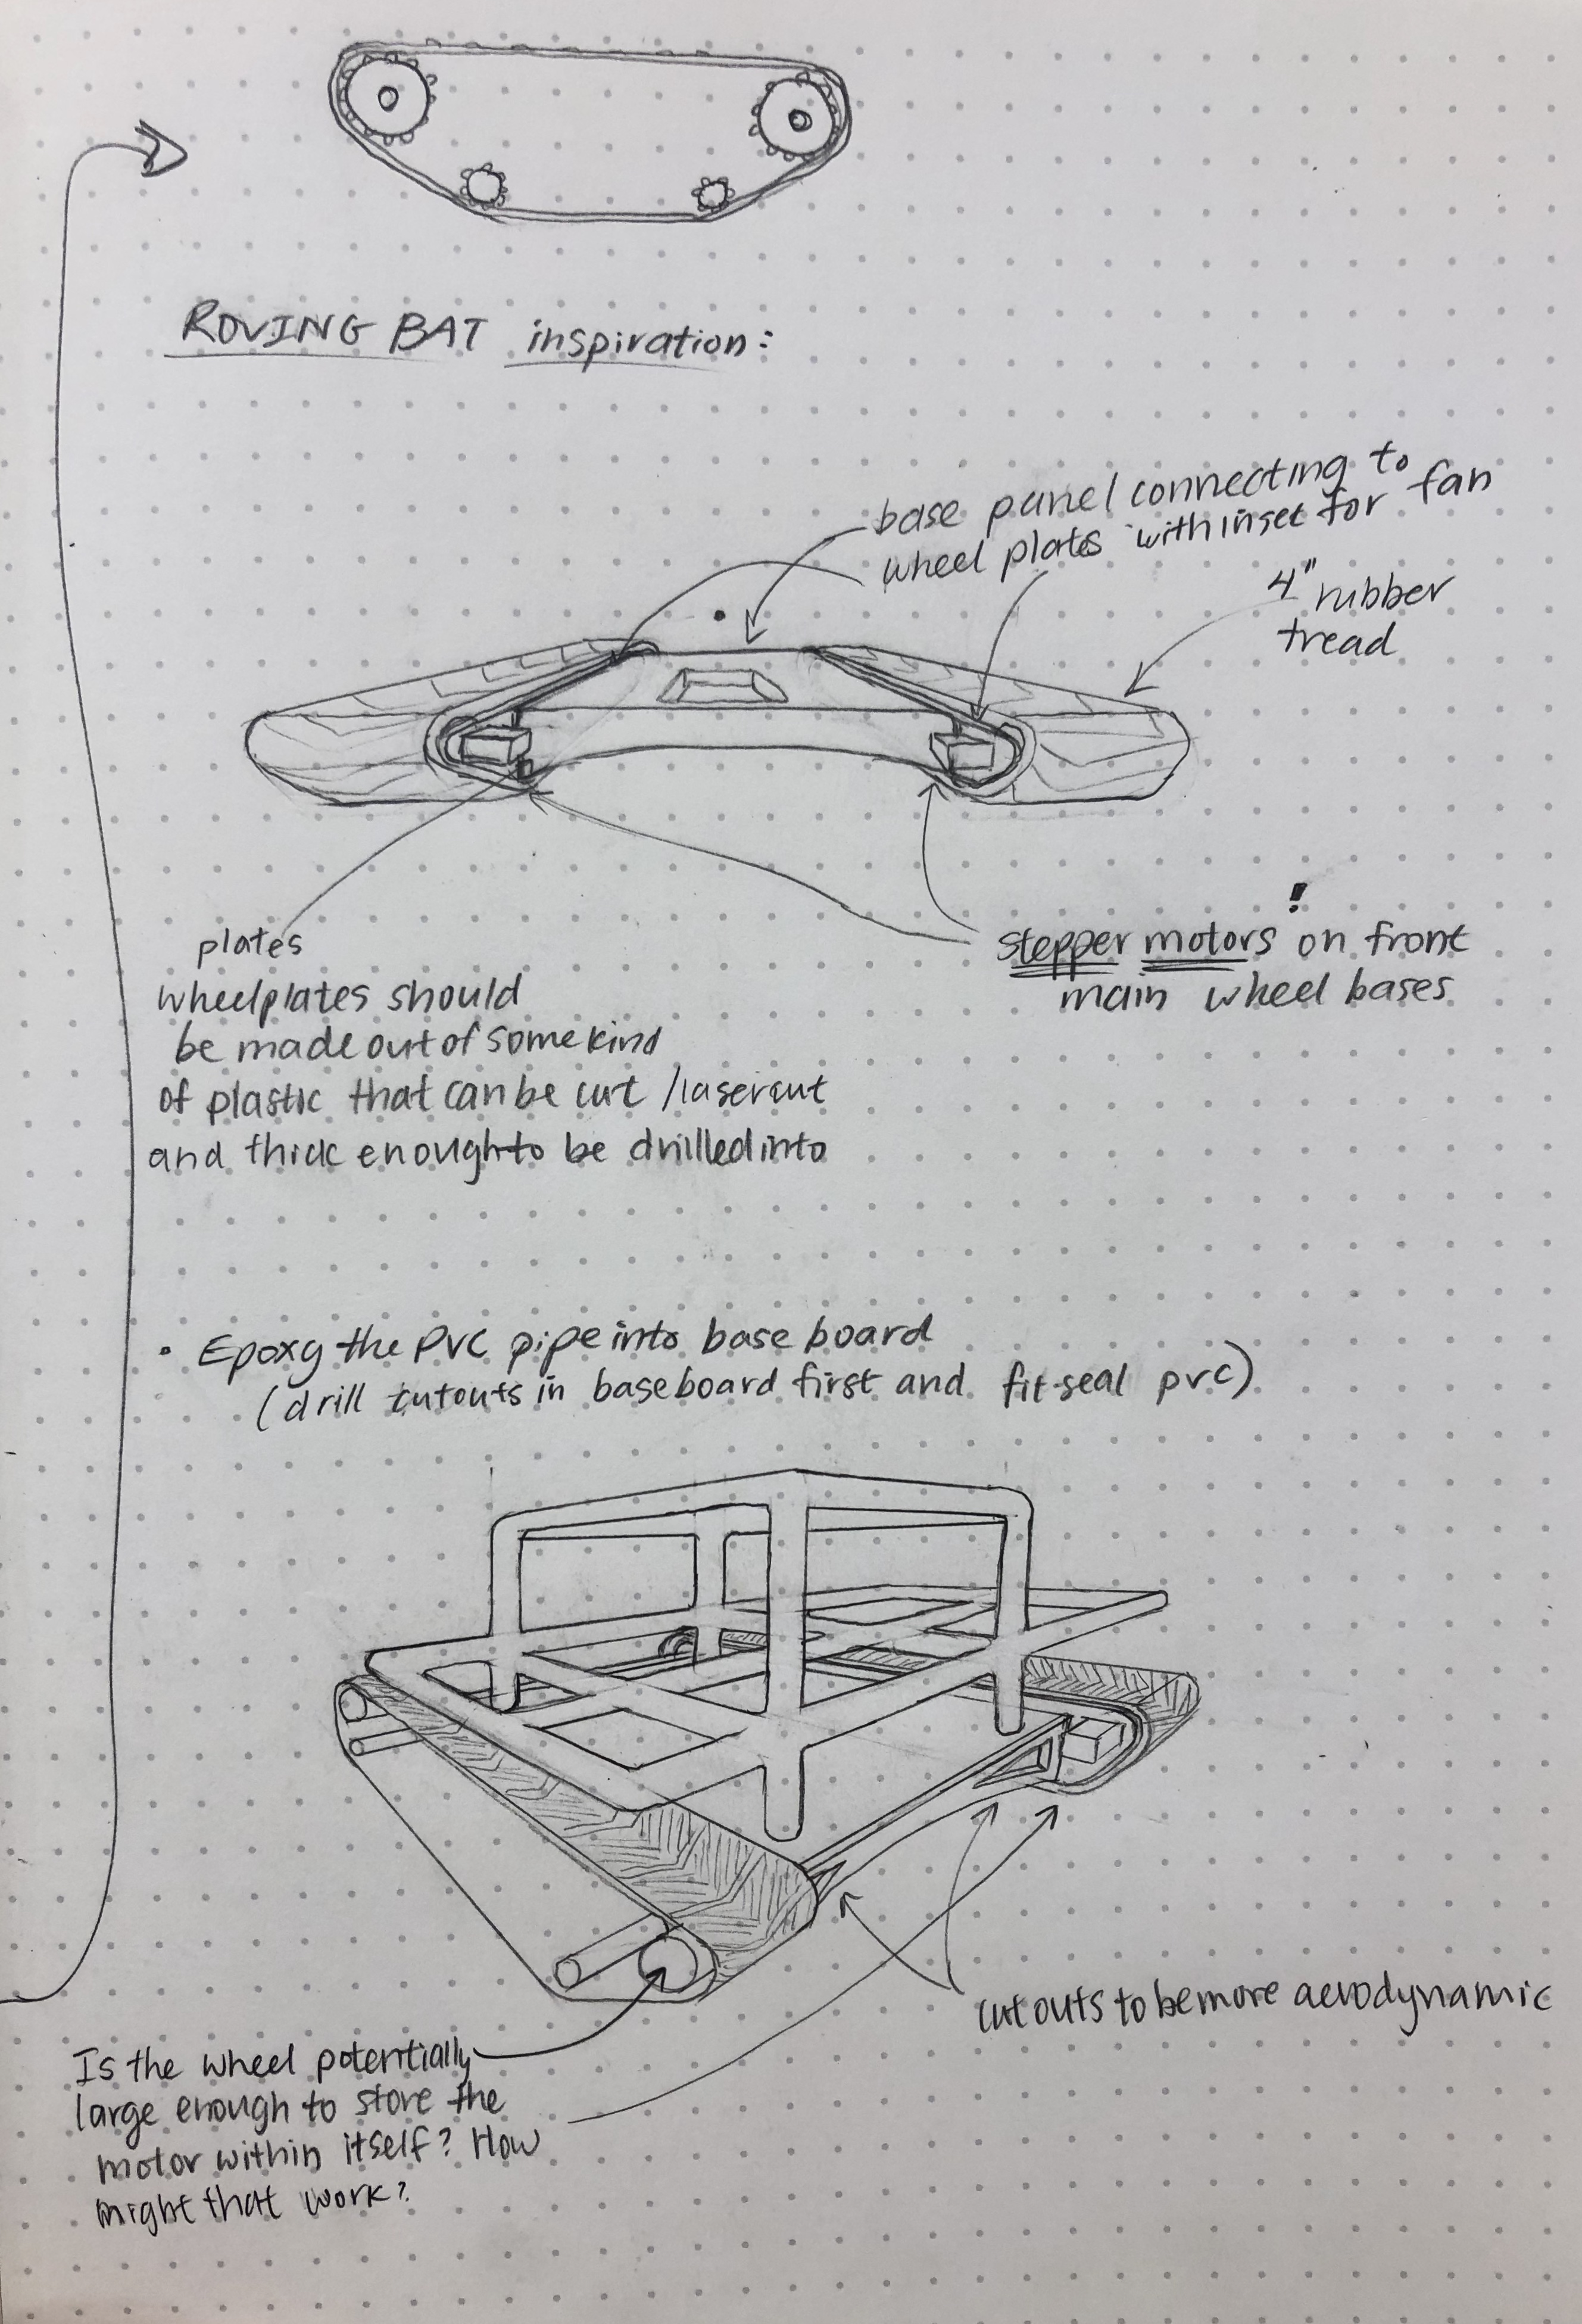 ROVING BAT inspiration:
base panel connecting to
wheel plates with inset for fan
4" rubber
tread
plates
wheelplates should
be made out of some kind
of plastic that can be cut /lasercut
and thick enough to be drilled into
stepper motors! on front
main wheel bases
• Epoxy the PVC pipe into base board
(drill cutouts in baseboard first and fit-seal pvc)
cutouts to be more aerodynamic
Is the wheel potentially
large enough to store the
motor within itself? How
might that work?